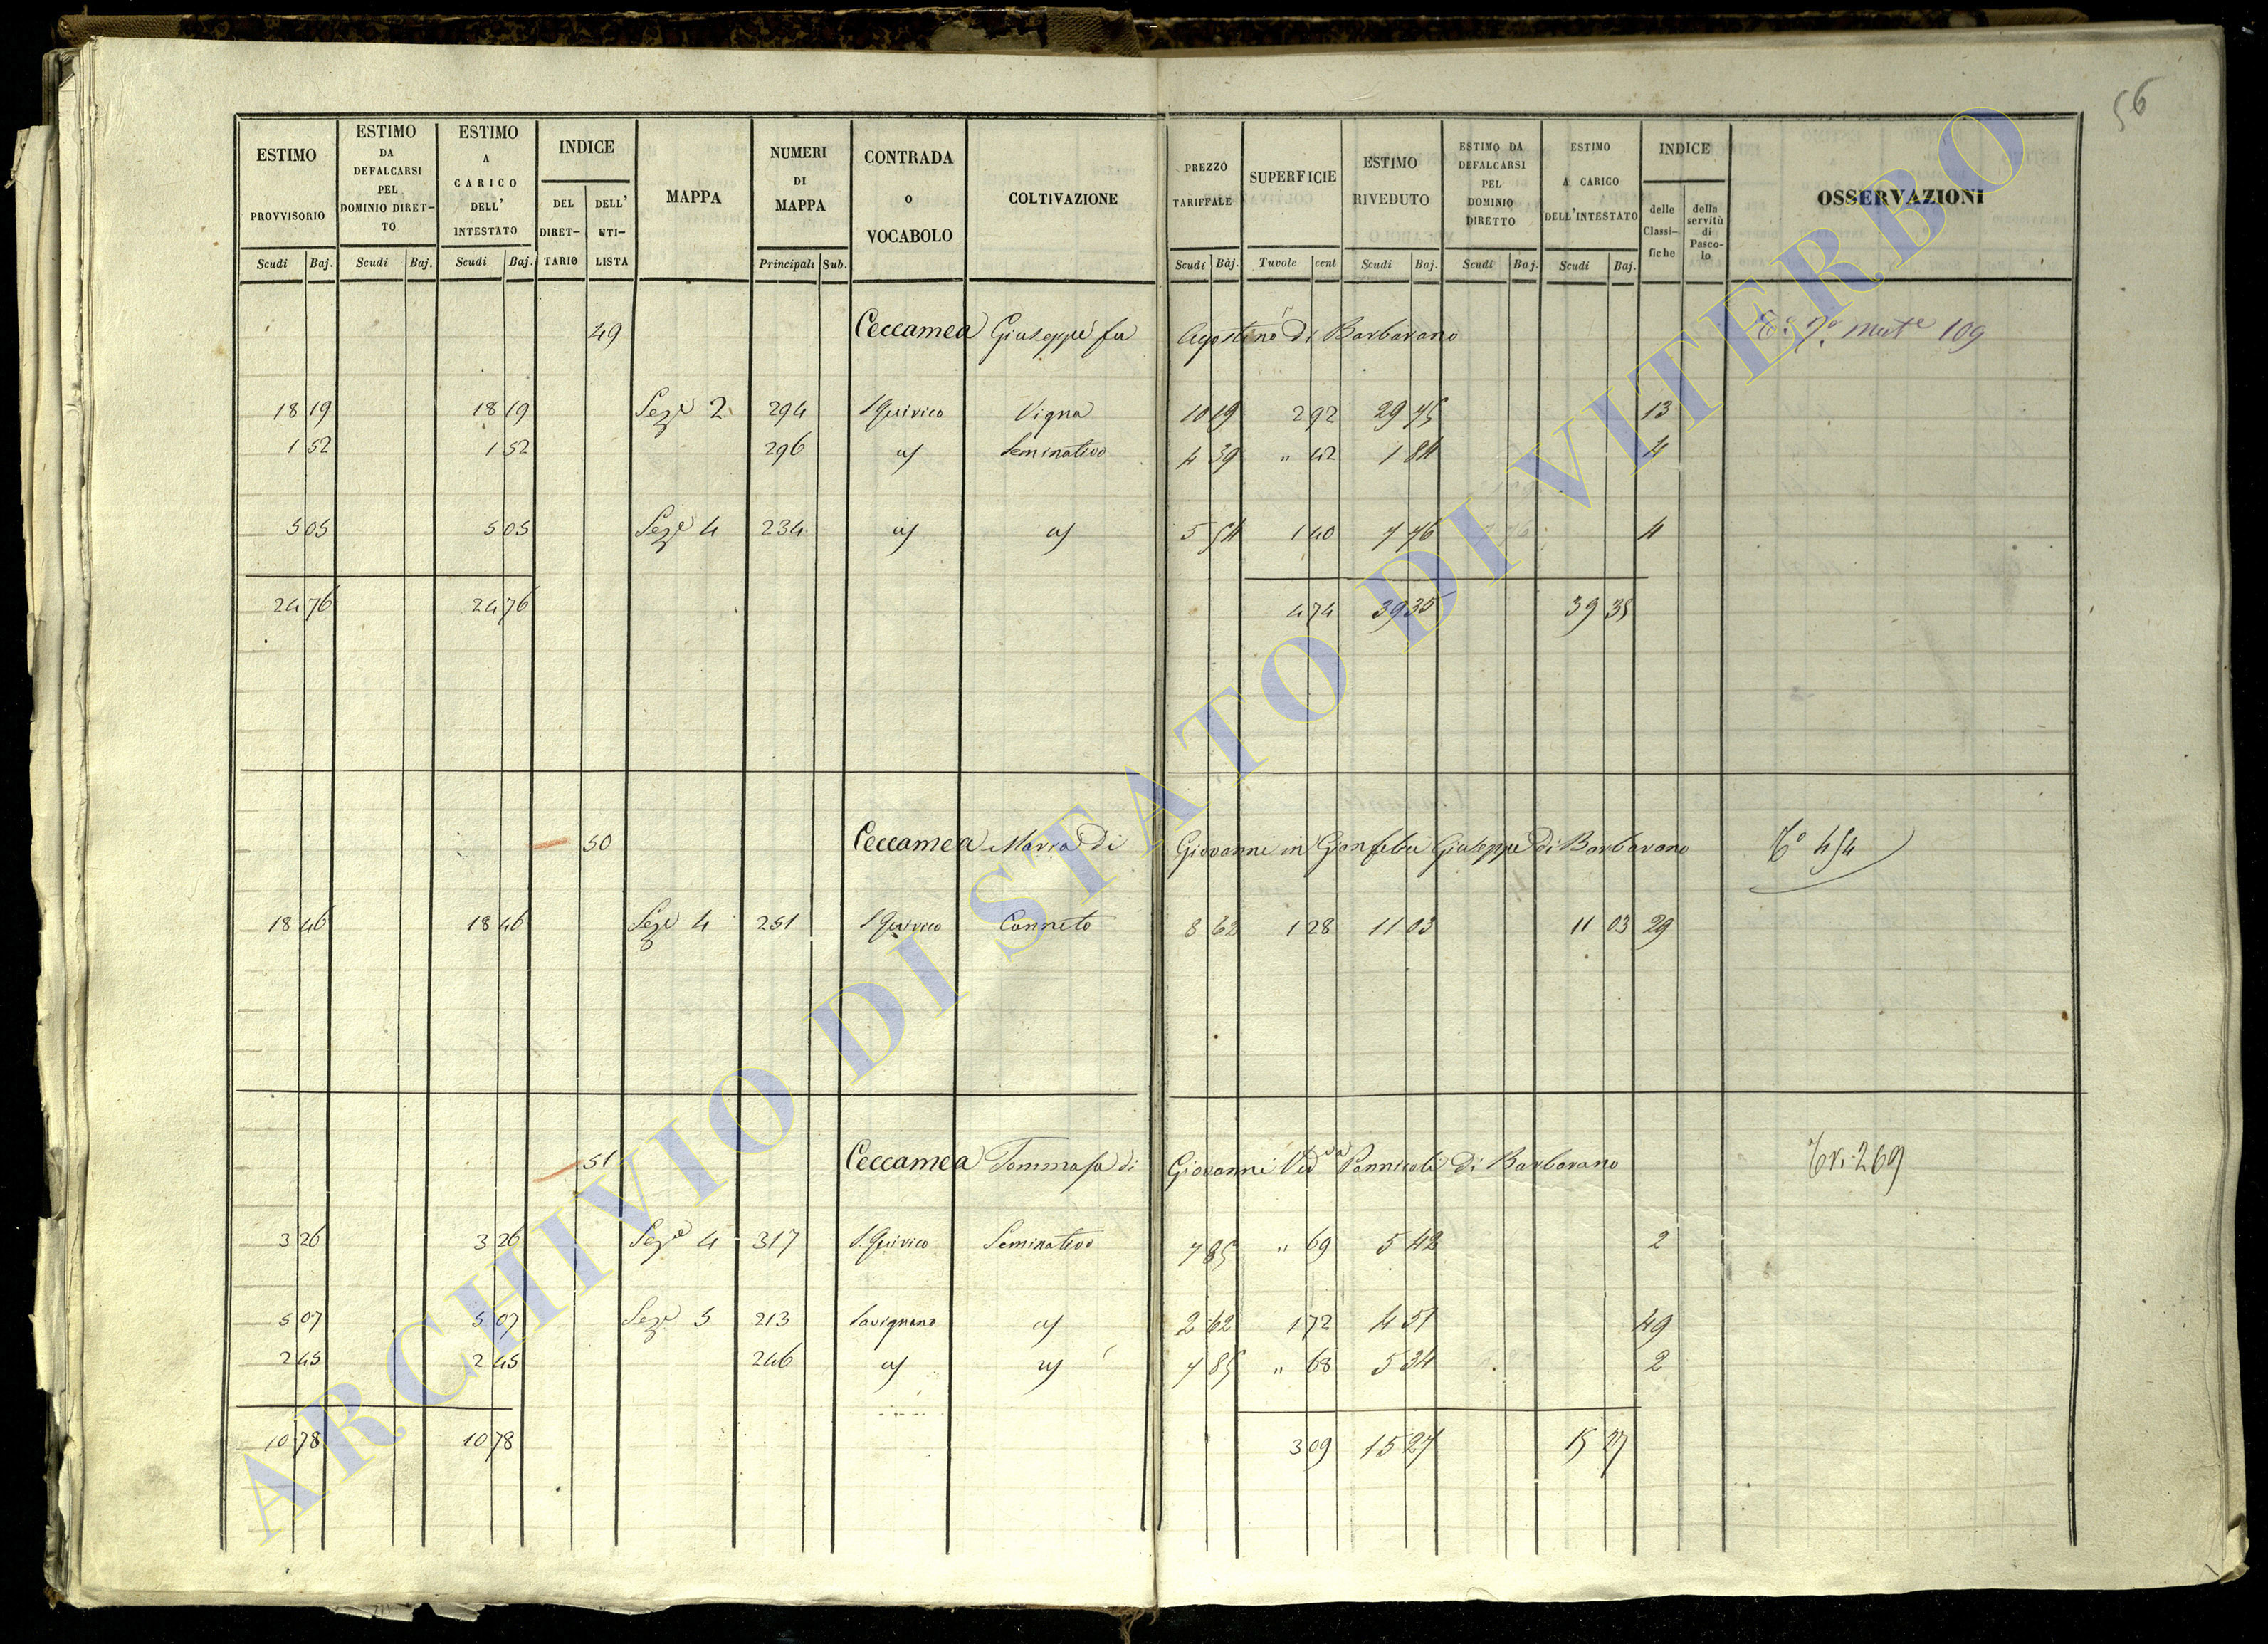 56
ESTIMO PROVVISORIO
ESTIMO DA DEFALCARSI PEL DOMINIO DIRET-TO
ESTIMO A CARICO DELL' INTESTATO
INDICE
DEL DIRET-TARIO
DELL' UTI-LISTA
MAPPA
NUMERI DI MAPPA
CONTRADA o VOCABOLO
COLTIVAZIONE
PREZZO TARIFFALE
SUPERFICIE
ESTIMO RIVEDUTO
ESTIMO DA DEFALCARSI PEL DOMINIO DIRETTO
ESTIMO A CARICO DELL'INTESTATO
INDICE
delle Classi-fiche
della servitù di Pasco-lo
OSSERVAZIONI
Scudi Baj. Scudi Baj. Scudi Baj. Principali Sub. Scudi Baj. Tuvole cent Scudi Baj. Scudi Baj. Scudi Baj.
49 Ceccamea Giuseppe fu Agostino di Barbarano mut.e 109
18 19 18 19 Seze 2 294 S Quirico Vigna 10 19 2 92 29 75 13
1 52 1 52 296 Seminativo 4 39 " 42 1 84 4
5 05 5 05 Seze 4 234 5 54 1 40 7 76 4
24 76 24 76 4 74 39 35 39 35
50 Ceccamea Maria di Giovanni in Gianfelici Giuseppe di Barbarano 454
18 46 18 46 Seze 4 251 S Quirico Canneto 8 62 1 28 11 03 11 03 29
51 Ceccamea Tommasa di Giovanni Ved.va Pannicoli di Barbarano 269
3 26 3 26 Seze 4 317 S. Quirico Seminativo 7 85 " 69 5 42 2
5 07 5 07 Seze 5 213 Savignano 2 62 1 72 4 51 49
2 45 2 45 246 7 85 " 68 5 34 2
10 78 10 78 3 09 15 27 15 27
ARCHIVIO DI STATO DI VITERBO